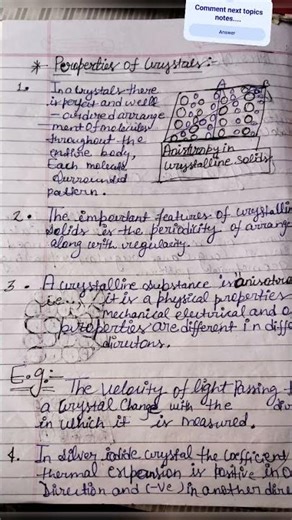 Comment next topics
notes....
Answer
* Properties of Crystals:-
1. In a crystals there
is perfect and well
-ordered arrange
ment of molecules
throughout the
entire body,
Each
surrounded
pattern.
Anisotropy in
crystalline solids
2. The important features of crystallin
solids is the periodicity of arrange
along with regularity.
3. A crystalline substance is anisotro
i.e., it is a physical properties
mechanical electrical and o
properties are different in diffe
directons.
E.g:- The velocity of light Passing t
a crystal change with the dir
in which it is measured.
4. In silver iodide crystal the coefficient
thermal expansion is positive in O
Direction and (-ve) in another dire